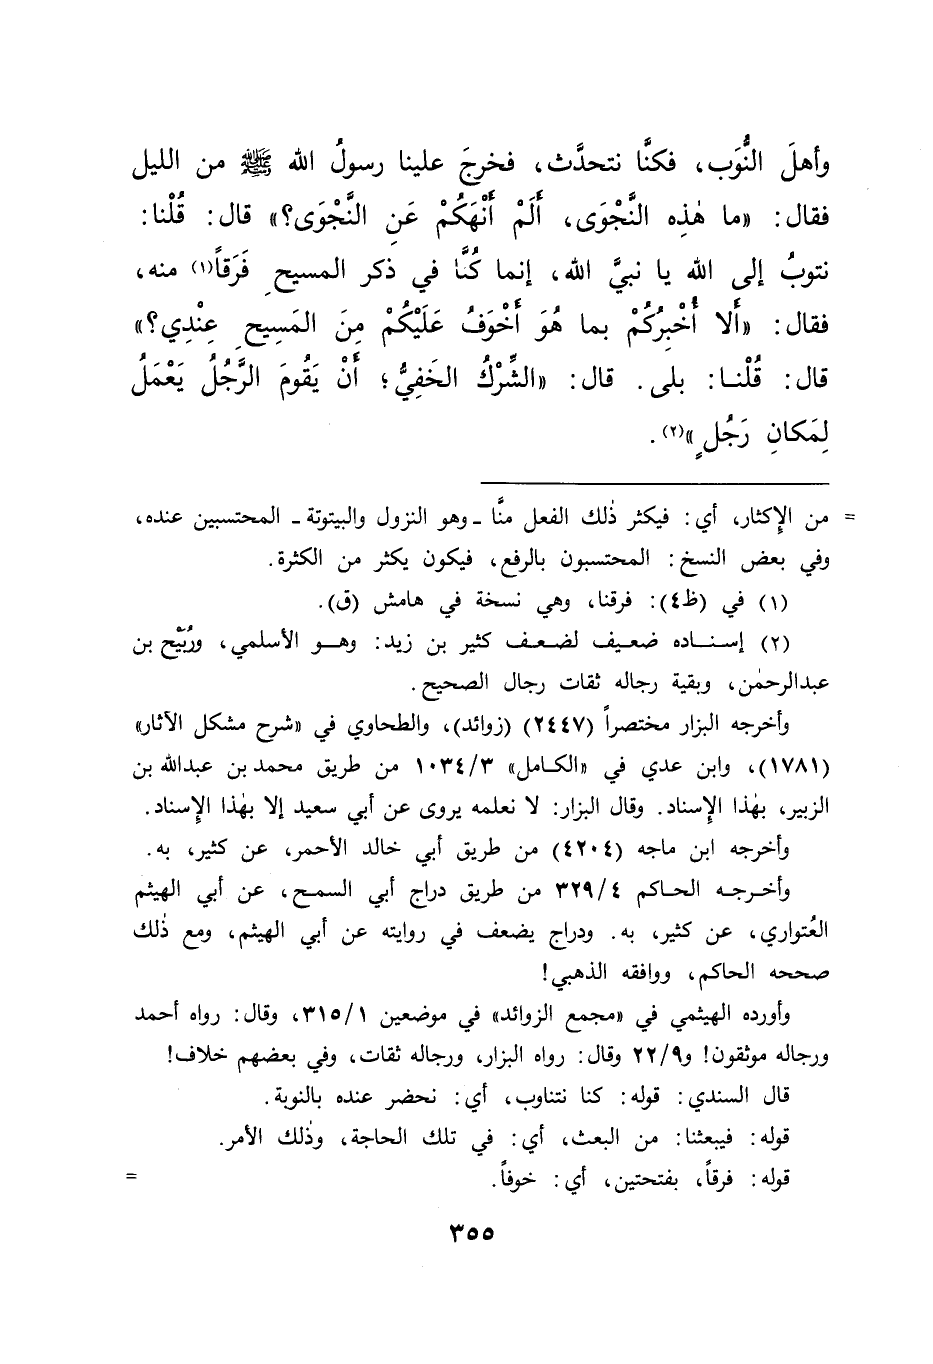 وأهلَ النُّوَب، فكنَّا نتحدَّث، فخرجَ علينا رسولُ الله ﷺ من الليل
فقال: «ما هٰذِه النَّجْوَى، أَلَمْ أَنْهَكُمْ عَنِ النَّجْوَى؟» قال: قُلْنا:
نتوبُ إلى الله يا نبيَّ الله، إنما كُنَّا في ذكر المسيحِ فَرَقاً(١) منه،
فقال: «أَلا أُخْبِرُكُمْ بما هُوَ أَخْوَفُ عَلَيْكُمْ مِنَ المَسِيحِ عِنْدِي؟»
قال: قُلْنـا: بلى. قال: «الشِّرْكُ الخَفِيُّ؛ أَنْ يَقُومَ الرَّجُلُ يَعْمَلُ
لِمَكانِ رَجُلٍ»(٢).
= من الإِكثار، أي: فيكثر ذٰلك الفعل منَّا ـ وهو النزول والبيتوتة ـ المحتسبين عنده،
وفي بعض النسخ: المحتسبون بالرفع، فيكون يكثر من الكثرة.
(١) في (ظ٤): فرقنا، وهي نسخة في هامش (ق).
(٢) إسنـاده ضعيف لضعـف كثير بن زيد: وهـو الأسلمي، ورُبَيْح بن
عبدالرحمٰن، وبقية رجاله ثقات رجال الصحيح.
وأخرجه البزار مختصراً (٢٤٤٧) (زوائد)، والطحاوي في «شرح مشكل الآثار»
(١٧٨١)، وابن عدي في «الكـامل» ١٠٣٤/٣ من طريق محمد بن عبدالله بن
الزبير، بهٰذا الإِسناد. وقال البزار: لا نعلمه يروى عن أبي سعيد إلا بهٰذا الإِسناد.
وأخرجه ابن ماجه (٤٢٠٤) من طريق أبي خالد الأحمر، عن كثير، به.
وأخـرجـه الحاكم ٣٢٩/٤ من طريق دراج أبي السمـح، عن أبي الهيثم
العُتواري، عن كثير، به. ودراج يضعف في روايته عن أبي الهيثم، ومع ذٰلك
صححه الحاكم، ووافقه الذهبي!
وأورده الهيثمي في «مجمع الزوائد» في موضعين ٣١٥/١، وقال: رواه أحمد
ورجاله موثقون! و٢٢/٩ وقال: رواه البزار، ورجاله ثقات، وفي بعضهم خلاف!
قال السندي: قوله: كنا نتناوب، أي: نحضر عنده بالنوبة.
قوله: فيبعثنا: من البعث، أي: في تلك الحاجة، وذٰلك الأمر.
قوله: فرقاً، بفتحتين، أي: خوفاً. =
٣٥٥